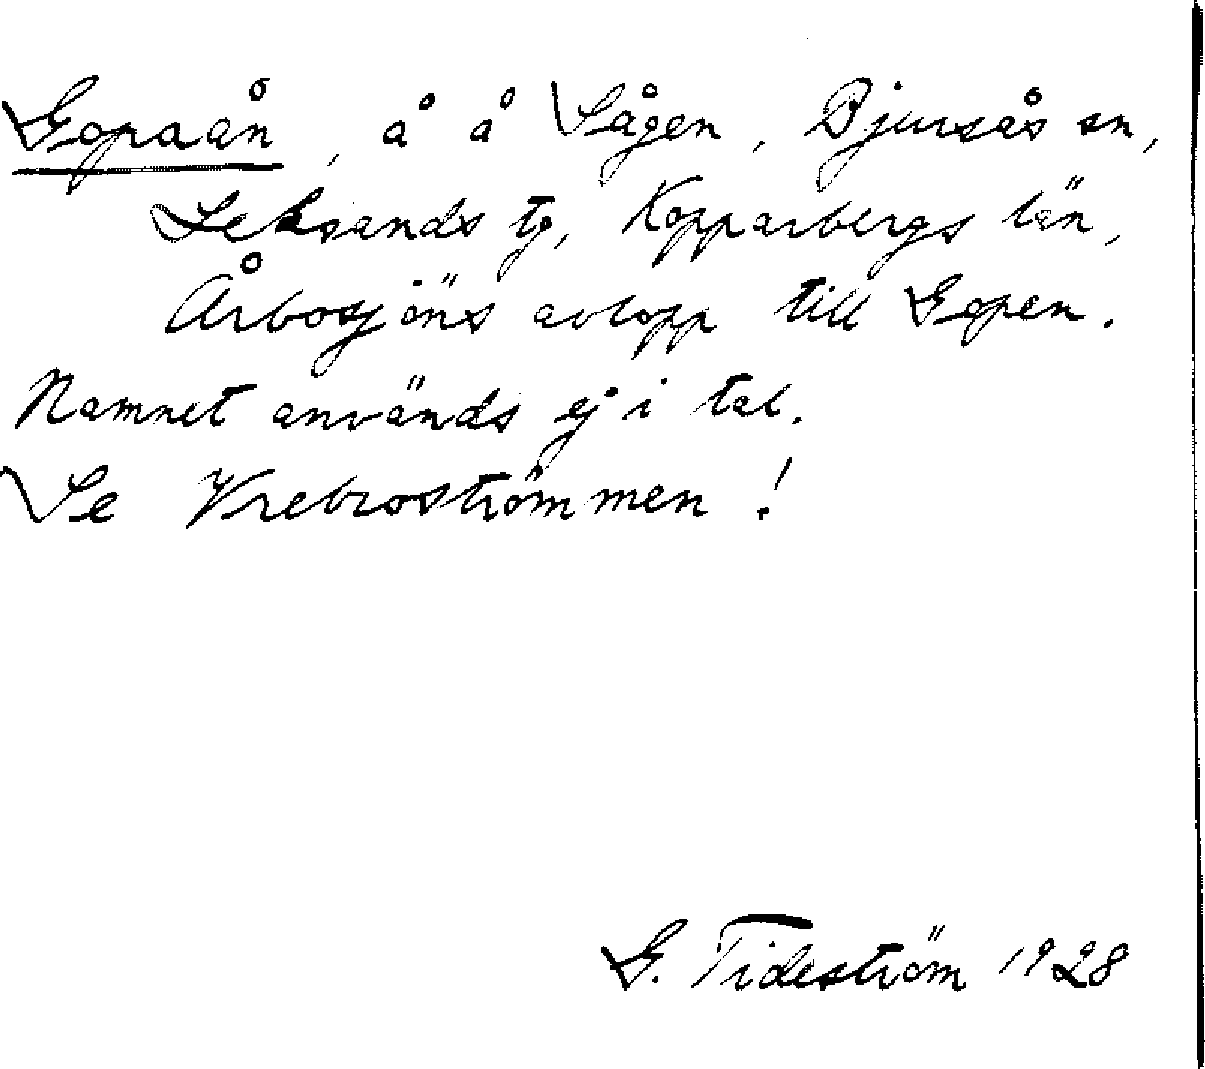 Gopaån, å å Sågen, Bjursås sn,
Leksands tg, Kopparbergs län,
Årbosjöns avlopp till Gopen.
Namnet används ej i tal.
Se Vrebroströmmen!
G. Tideström 1928